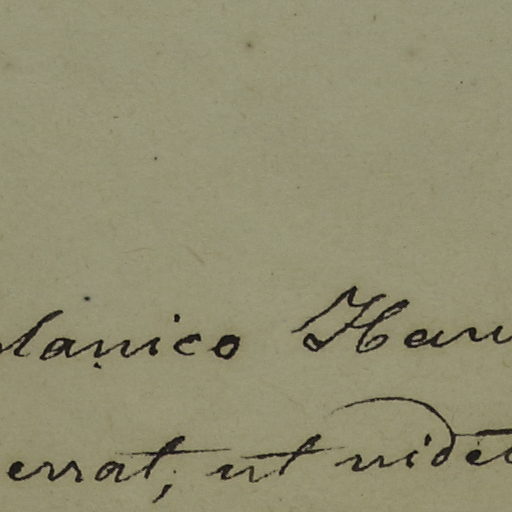 lanico Hau
errat, ut videt